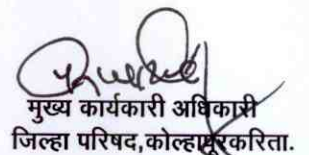 मुख्य कार्यकारी अधिकारी
जिल्हा परिषद,कोल्हापूरकरिता.